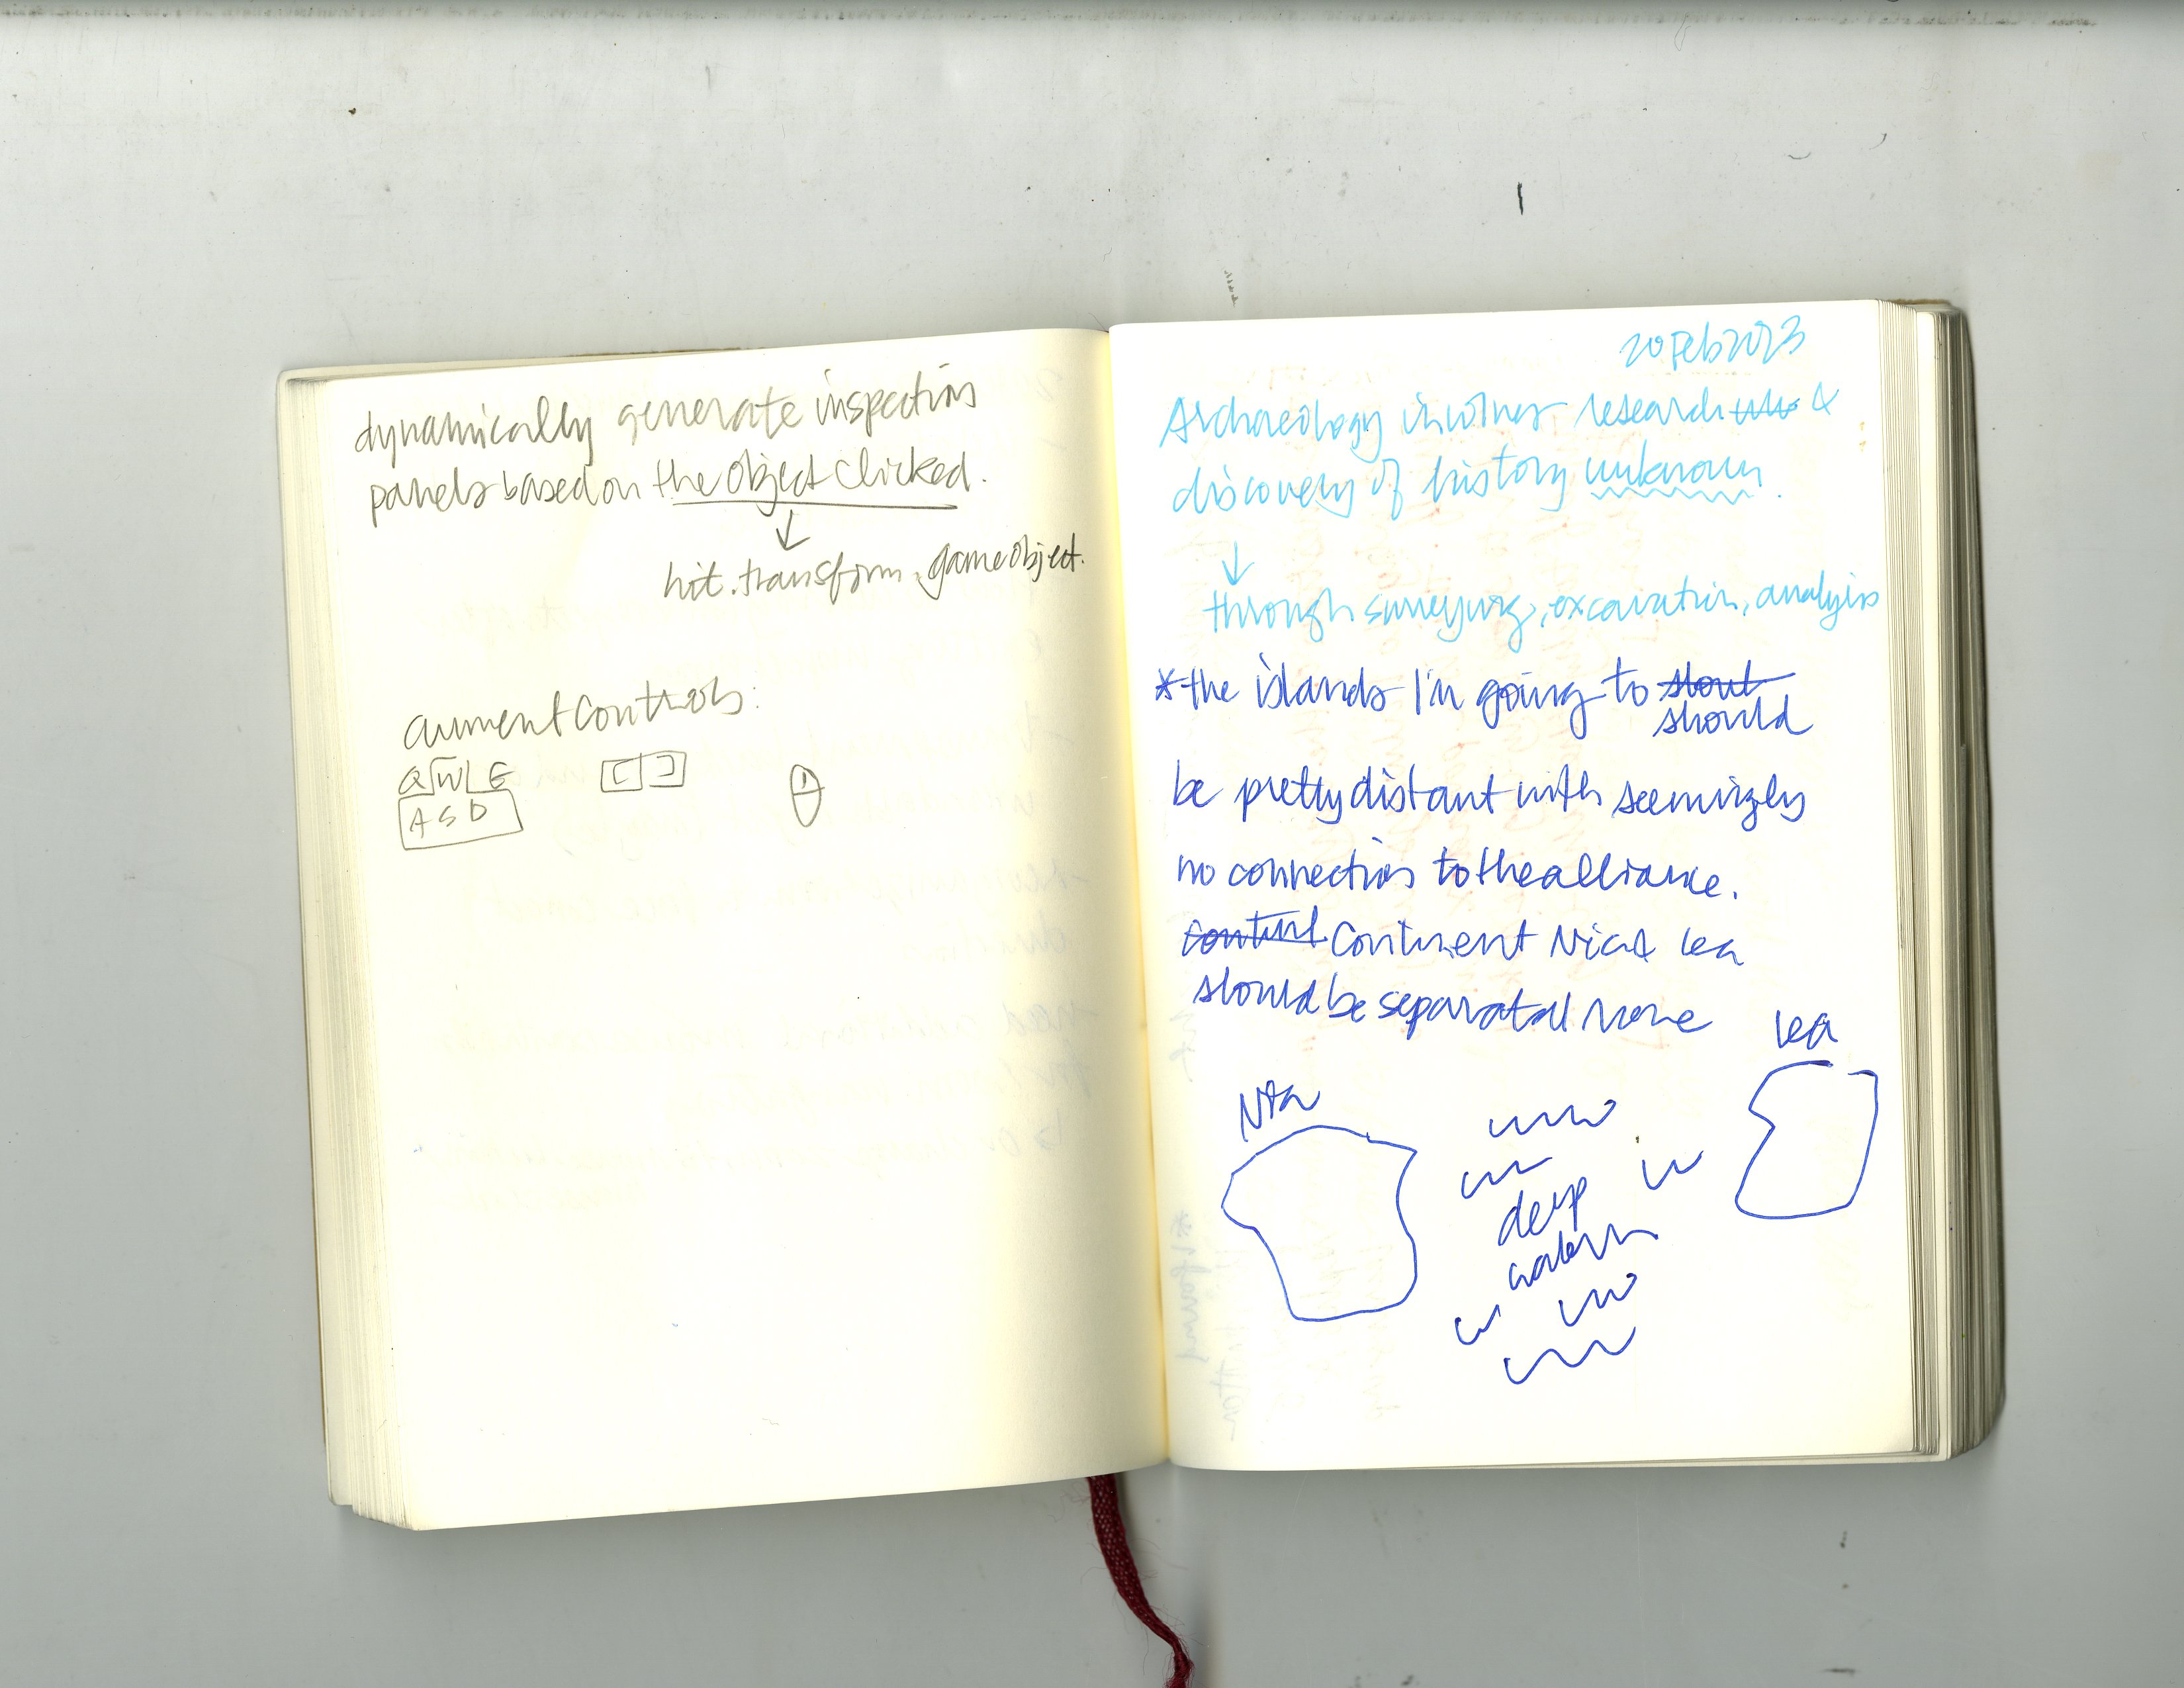 dynamically generate inspection
panels based on the object clicked.
hit.transform.gameobject.
current controls:
Q W E
A S D
[ ]
20 Feb 2023
Archaeology involves research &
discovery of history unknown.
through surveying, excavation, analysis
*the islands I'm going to
should
be pretty distant with seemingly
no connection to the alliance.
Continent Nia & Lea
should be separated more
Lea
Nia
deep
waters